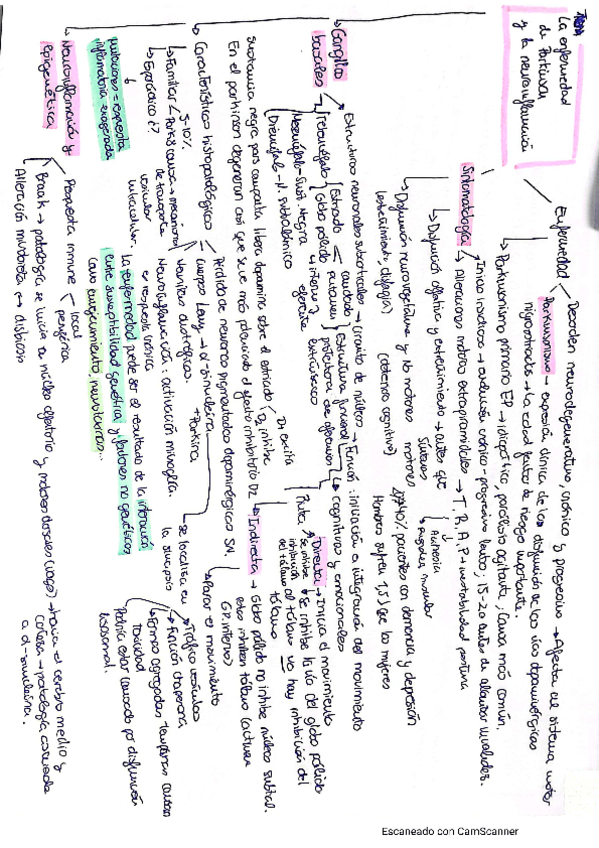 Tema
La enfermedad
de Parkinson
y la neuroinflamación
Enfermedad
Desorden neurodegenerativo, crónico y progresivo → Afecta al sistema motor
Parkinsonismo → expresión clínica de las disfunción de las vías dopaminérgicas
nigrostriadas → la edad factor de riesgo importante.
Parkinsonismo primario EP → idiopático, parálisis agitante, causa más común.
Sintomatología
Inicio insidioso → evolución crónica - progresiva lento; 15-20 años de alcanzar invalidez.
Alteraciones motoras extrapiramidales → T, R, A, P → inestabilidad postura
Acinesia
Rigidez muscular
Disfunción olfativa y estreñimiento → antes que
síntomas
motores
Disfunción neurovegetativa y no motores
(estreñimiento, disfagia)
(deterioro cognitivo)
20-40% pacientes con demencia y depresión
Hombres sufren 1,5 > de las mujeres
Ganglios
basales
Estructuras neuronales subcorticales → circuito de núcleos → Función: iniciación e integración del movimiento
cognitivas y emocionales
Telencéfalo
Estriado
caudado
putamen
Globo pálido
interno
externo
Estructura funcional
Mesencéfalo - Sust. Negra
Diencéfalo - N. subtalámico
D1 excita
D2 inhibe
Ruta
Directa → Inicia el movimiento
Se inhibe la vía del globo pálido
al tálamo → no hay inhibición del
tálamo
Indirecta → Globo pálido no inhibe núcleo subtal.
estos inhiben tálamo (activan
GP. interno)
Parar el movimiento
sustancia negra pars compacta libera dopamina sobre el estriado
En el parkinson degeneran así que se ve más potenciado el efecto inhibitorio D2
Características histopatológicas
Pérdida de neuronas pigmentadas dopaminérgicas SN.
Cuerpos Lewy → α-sinucleina
+ Parkina
se localiza en
la sinapsis
Tráfico vesículas
Función chaperona
Formas agregadas tempranas causan
toxicidad
Podría estar causado por disfunción
lisosomal.
Neuritas distróficas.
Neuroinflamación: activación microglía.
es respuesta crónica
Familiar
5-10%
de transporte
vesicular
intracelular.
Esporádico i?
mutaciones = respuesta
inflamatoria exagerada
La enfermedad puede ser el resultado de la interacción
entre susceptibilidad genética y factores no genéticos
como envejecimiento, neurotoxinas...
Neuroinflamación y
epigenética
Respuesta inmune
local
periférica
Braak → patología se inicia en núcleo olfatorio y motores dorsales (vago) → hacia el cerebro medio y
corteza → patología asociada
a α-sinucleina.
Alteración microbiota ↔ disbiosis
Escaneado con CamScanner